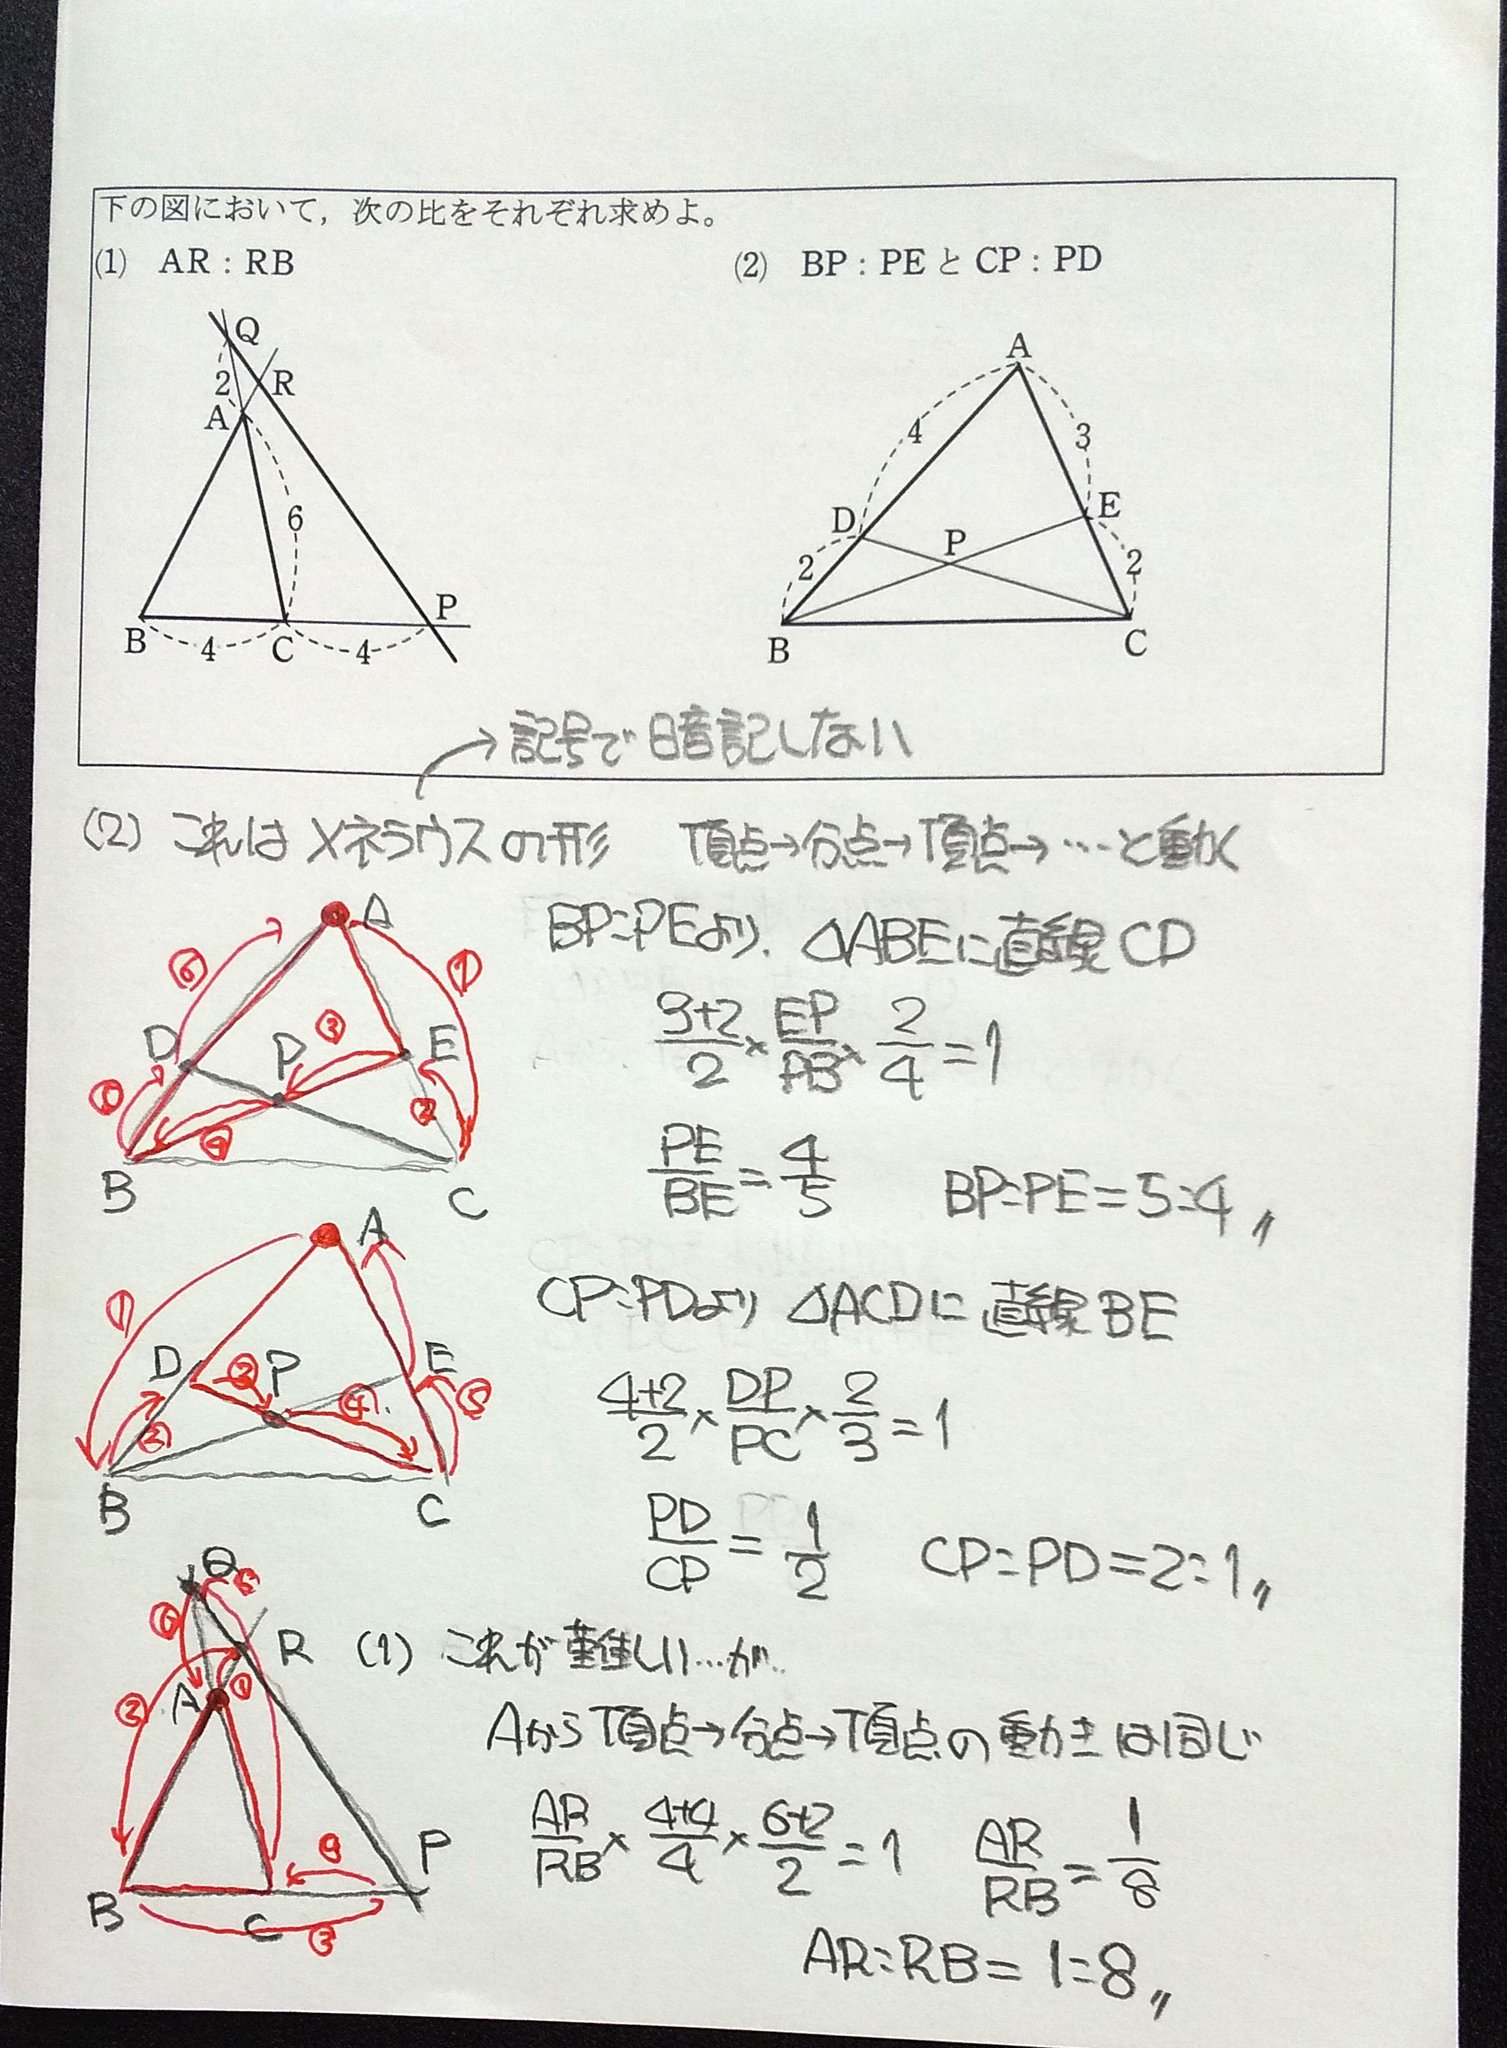 下の図において，次の比をそれぞれ求めよ。
(1) AR : RB
(2) BP : PE と CP : PD
Q
2
R
A
6
P
B
4
C
4
A
4
3
D
E
P
2
2
B
C
→記号で暗記しない
(2) これはメネラウスの形 頂点→分点→頂点→…と動く
A
D
P
E
B
C
BP:PEより、△ABEに直線CD
3+2/2 × EP/PB × 2/4 = 1
PE/BE = 4/5 BP:PE=5:4〃
A
D
P
E
B
C
CP:PDより △ACDに直線BE
4+2/2 × DP/PC × 2/3 = 1
PD/CP = 1/2 CP:PD=2:1〃
Q
R
A
B
C
P
(1) これが難しい…が…
Aから頂点→分点→頂点の動きは同じ
AR/RB × 4+4/4 × 6+2/2 = 1 AR/RB = 1/8
AR:RB=1:8〃